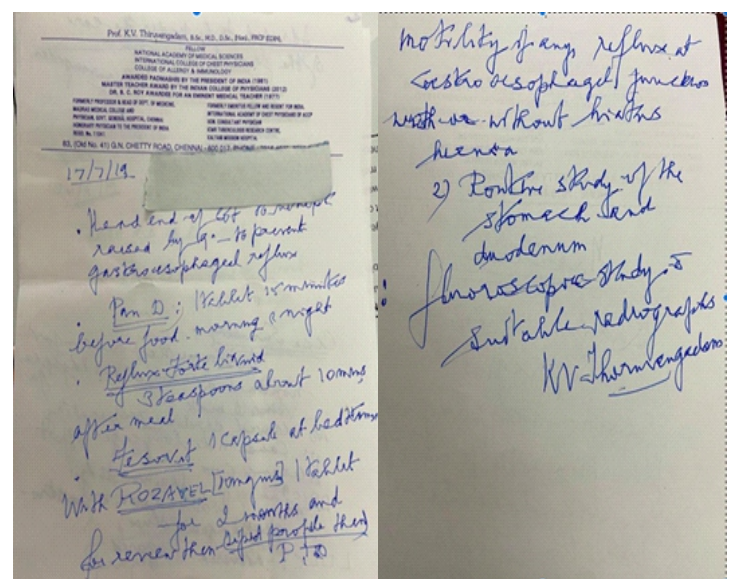 Prof. K.V. Thiruvengadam, B.Sc., M.D., D.Sc. (Hon), FRCP (EDIN),
FELLOW
NATIONAL ACADEMY OF MEDICAL SCIENCES
INTERNATIONAL COLLEGE OF CHEST PHYSICIANS
COLLEGE OF ALLERGY & IMMUNOLOGY
AWARDED PADMASHRI BY THE PRESIDENT OF INDIA (1981)
MASTER TEACHER AWARD BY THE INDIAN COLLEGE OF PHYSICIANS (2012)
DR. B.C. ROY AWARDEE FOR AN EMINENT MEDICAL TEACHER (1977)
FORMERLY PROFESSOR & HEAD OF DEPT. OF MEDICINE,
MADRAS MEDICAL COLLEGE AND
PHYSICIAN, GOVT. GENERAL HOSPITAL, CHENNAI
HONORARY PHYSICIAN TO THE PRESIDENT OF INDIA
FORMERLY EMERITUS FELLOW AND REGENT FOR INDIA,
INTERNATIONAL ACADEMY OF CHEST PHYSICIANS OF ACCP
HON. CONSULTANT PHYSICIAN
TUBERCULOSIS RESEARCH CENTRE,
HOSPITAL
83, (Old No. 41) G.N. CHETTY ROAD, CHENNAI - 600 017.
17/7/19
Head end of cot to be
raised by 9" to prevent
gastroesophageal reflux
Pan D : 1 tablet 15 minutes
before food. morning & night
Reflux Forte liquid
3 teaspoons about 10 mins
after meal
1 capsule at bedtime
With ROZAVEL [10mgms] 1 tablet
for 2 months and
for review then lipid profile then
P.T.O
motility if any, reflux at
Gastroesophageal junction
with or without hiatus
hernia
2) Routine study of the
stomach and
duodenum
fluoroscopic study c̄
suitable radiographs
KV Thiruvengadam